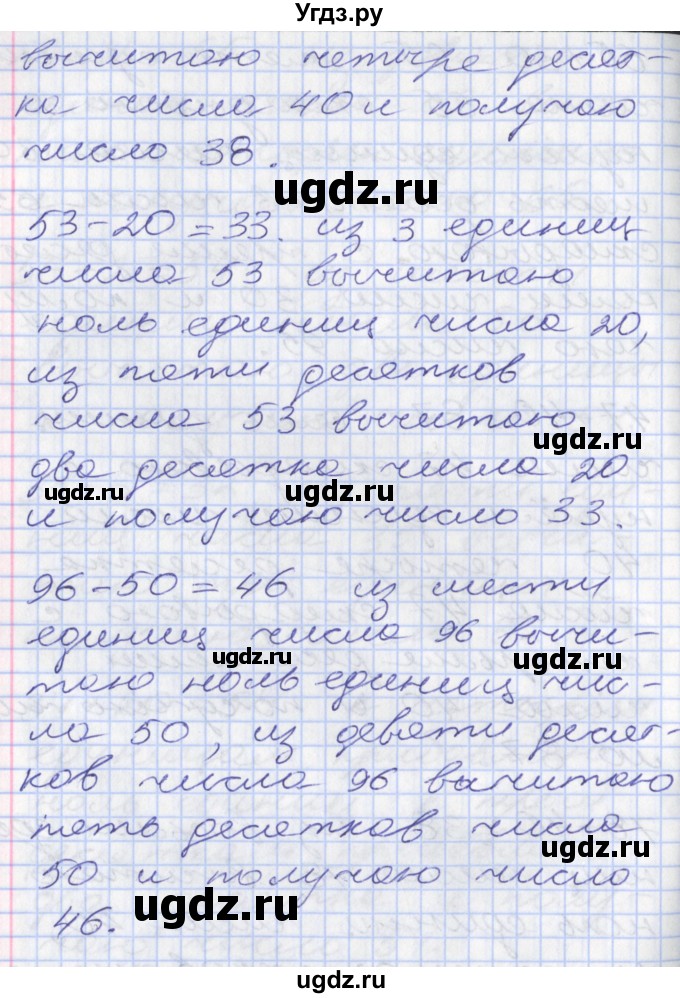 Угдз.ру
вычитаю четыре десят-
ка числа 40 и получаю
число 38.
ugdz.ru
53-20=33. из 3 единиц
числа 53 вычитаю
ugdz.ru
ноль единиц числа 20,
из пяти десятков
числа 53 вычитаю
ugdz.ru
два десятка числа 20
ugdz.ru ugdz.ru
и получаю число 33.
96-50=46 из шести
единиц числа 96 вычи-
ugdz.ru ugdz.ru
таю ноль единиц чис-
ла 50, из девяти десят-
ков числа 96 вычитаю
пять десятков числа
ugdz.ru
50 и получаю число
46.
ugdz.ru
ugdz.ru